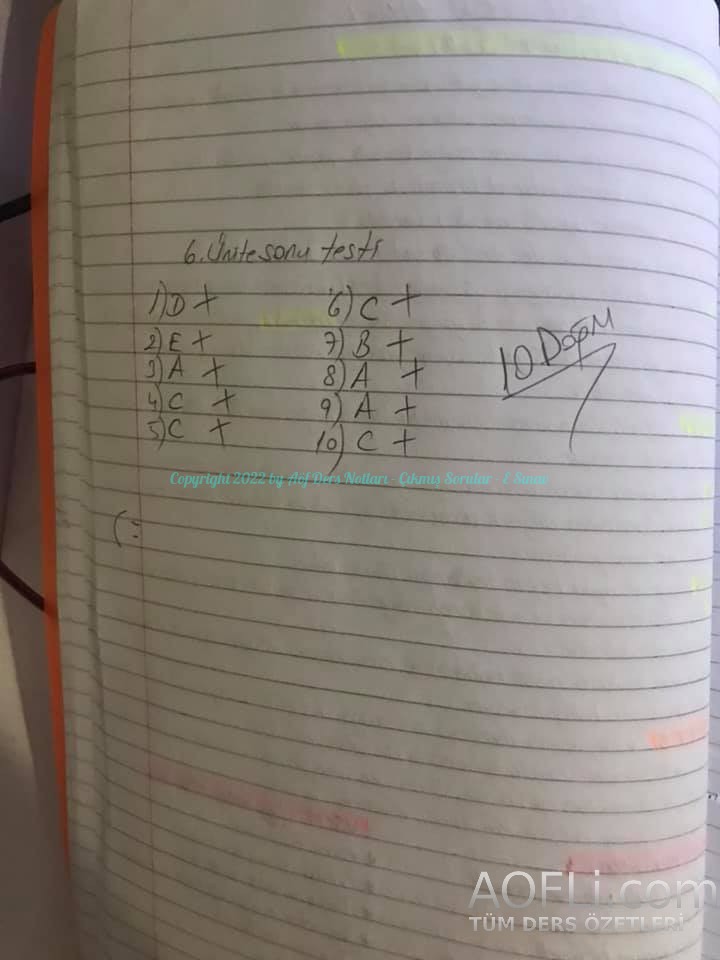 6. Ünite sonu testi
1) D +
2) E +
3) A +
4) C +
5) C +
6) C +
7) B +
8) A +
9) A +
10) C +
10 Doğru
Copyright 2022 by Aöf Ders Notları - Çıkmış Sorular - E Sınav
(:
AOFLi.com
TÜM DERS ÖZETLERİ